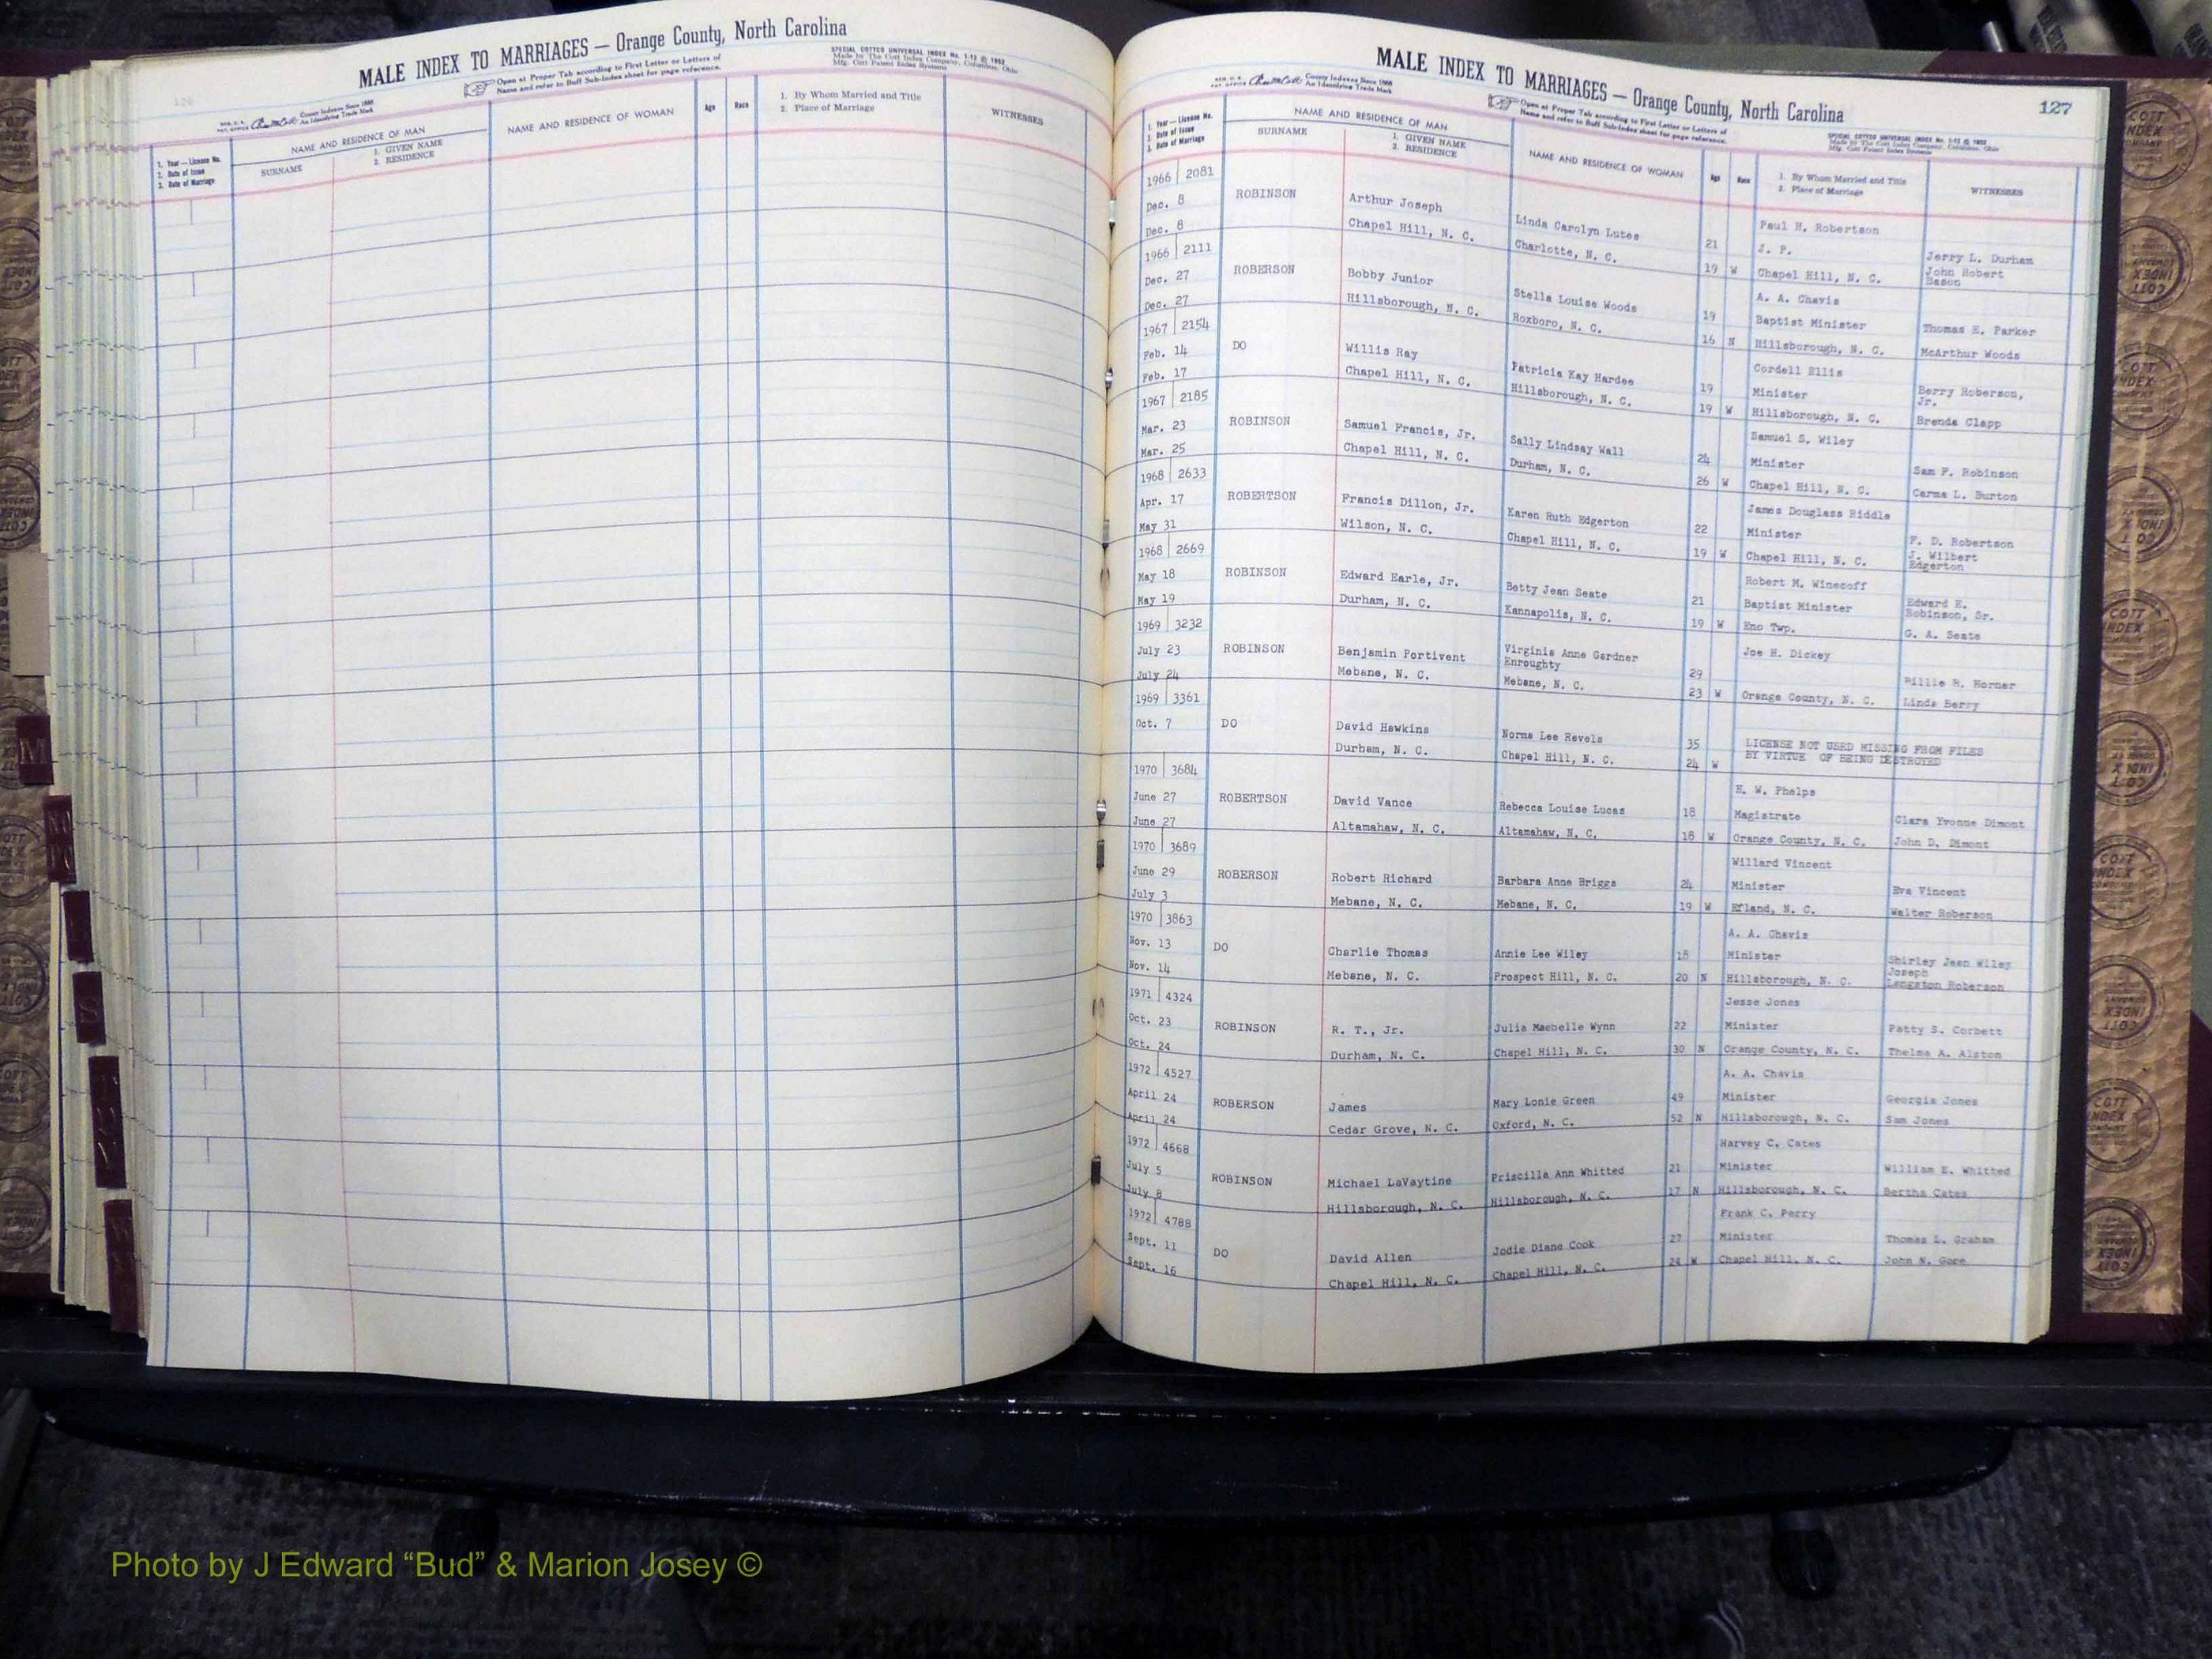 MALE INDEX TO MARRIAGES — Orange County, North Carolina
Open at Proper Tab according to First Letter or Letters of
Name and refer to Buff Sub-Index sheet for page reference.
SPECIAL COTTCO UNIVERSAL INDEX No. 1-12 © 1952
Made by The Cott Index Company, Columbus, Ohio
Mfg. Cott Patent Index Systems
County Indexes Since 1888
An Identifying Trade Mark
1. Year — License No.
2. Date of Issue
3. Date of Marriage
NAME AND RESIDENCE OF MAN
SURNAME
1. GIVEN NAME
2. RESIDENCE
NAME AND RESIDENCE OF WOMAN
Age
Race
1. By Whom Married and Title
2. Place of Marriage
WITNESSES
MALE INDEX TO MARRIAGES — Orange County, North Carolina
127
County Indexes Since 1888
An Identifying Trade Mark
Open at Proper Tab according to First Letter or Letters of
Name and refer to Buff Sub-Index sheet for page reference.
SPECIAL COTTCO UNIVERSAL INDEX No. 1-12 © 1952
Made by The Cott Index Company, Columbus, Ohio
Mfg. Cott Patent Index Systems
1. Year — License No.
2. Date of Issue
3. Date of Marriage
NAME AND RESIDENCE OF MAN
SURNAME
1. GIVEN NAME
2. RESIDENCE
NAME AND RESIDENCE OF WOMAN
Age
Race
1. By Whom Married and Title
2. Place of Marriage
WITNESSES
1966 2081 Paul H. Robertson
Dec. 8 ROBINSON Arthur Joseph Linda Carolyn Lutes 21 J. P. Jerry L. Durham
Dec. 8 Chapel Hill, N. C. Charlotte, N. C. 19 W Chapel Hill, N. C. John Robert
Bason
1966 2111 A. A. Chavis
Dec. 27 ROBERSON Bobby Junior Stella Louise Woods 19 Baptist Minister Thomas E. Parker
Dec. 27 Hillsborough, N. C. Roxboro, N. C. 16 N Hillsborough, N. C. McArthur Woods
1967 2154 Cordell Ellis
Feb. 14 DO Willis Ray Patricia Kay Hardee 19 Minister Berry Roberson,
Jr.
Feb. 17 Chapel Hill, N. C. Hillsborough, N. C. 19 W Hillsborough, N. C. Brenda Clapp
1967 2185 Samuel S. Wiley
Mar. 23 ROBINSON Samuel Francis, Jr. Sally Lindsay Wall 24 Minister Sam F. Robinson
Mar. 25 Chapel Hill, N. C. Durham, N. C. 26 W Chapel Hill, N. C. Carma L. Burton
1968 2633 James Douglass Riddle
Apr. 17 ROBERTSON Francis Dillon, Jr. Karen Ruth Edgerton 22 Minister F. D. Robertson
May 31 Wilson, N. C. Chapel Hill, N. C. 19 W Chapel Hill, N. C. J. Wilbert
Edgerton
1968 2669 Robert M. Winecoff
May 18 ROBINSON Edward Earle, Jr. Betty Jean Seate 21 Baptist Minister Edward E.
Robinson, Sr.
May 19 Durham, N. C. Kannapolis, N. C. 19 W Eno Twp. G. A. Seate
1969 3232 Joe H. Dickey
July 23 ROBINSON Benjamin Portivent Virginia Anne Gardner
Enroughty 29 Billie B. Horner
July 24 Mebane, N. C. Mebane, N. C. 23 W Orange County, N. C. Linda Berry
1969 3361
Oct. 7 DO David Hawkins Norma Lee Revels 35 LICENSE NOT USED MISSING FROM FILES
Durham, N. C. Chapel Hill, N. C. 24 W BY VIRTUE OF BEING DESTROYED
1970 3684 H. W. Phelps
June 27 ROBERTSON David Vance Rebecca Louise Lucas 18 Magistrate Clara Yvonne Dimont
June 27 Altamahaw, N. C. Altamahaw, N. C. 18 W Orange County, N. C. John D. Dimont
1970 3689 Willard Vincent
June 29 ROBERSON Robert Richard Barbara Anne Briggs 24 Minister Eva Vincent
July 3 Mebane, N. C. Mebane, N. C. 19 W Efland, N. C. Walter Roberson
1970 3863 A. A. Chavis
Nov. 13 DO Charlie Thomas Annie Lee Wiley 18 Minister Shirley Jean Wiley
Nov. 14 Mebane, N. C. Prospect Hill, N. C. 20 N Hillsborough, N. C. Joseph
Langston Roberson
1971 4324 Jesse Jones
Oct. 23 ROBINSON R. T., Jr. Julia Maebelle Wynn 22 Minister Patty S. Corbett
Oct. 24 Durham, N. C. Chapel Hill, N. C. 30 N Orange County, N. C. Thelma A. Alston
1972 4527 A. A. Chavis
April 24 ROBERSON James Mary Lonie Green 49 Minister Georgia Jones
April 24 Cedar Grove, N. C. Oxford, N. C. 52 N Hillsborough, N. C. Sam Jones
1972 4668 Harvey C. Cates
July 5 ROBINSON Michael LaVaytine Priscilla Ann Whitted 21 Minister William E. Whitted
July 8 Hillsborough, N. C. Hillsborough, N. C. 17 N Hillsborough, N. C. Bertha Cates
1972 4788 Frank C. Perry
Sept. 11 DO David Allen Jodie Diane Cook 27 Minister Thomas L. Graham
Sept. 16 Chapel Hill, N. C. Chapel Hill, N. C. 24 W Chapel Hill, N. C. John N. Gore
M
S
Photo by J Edward “Bud” & Marion Josey ©